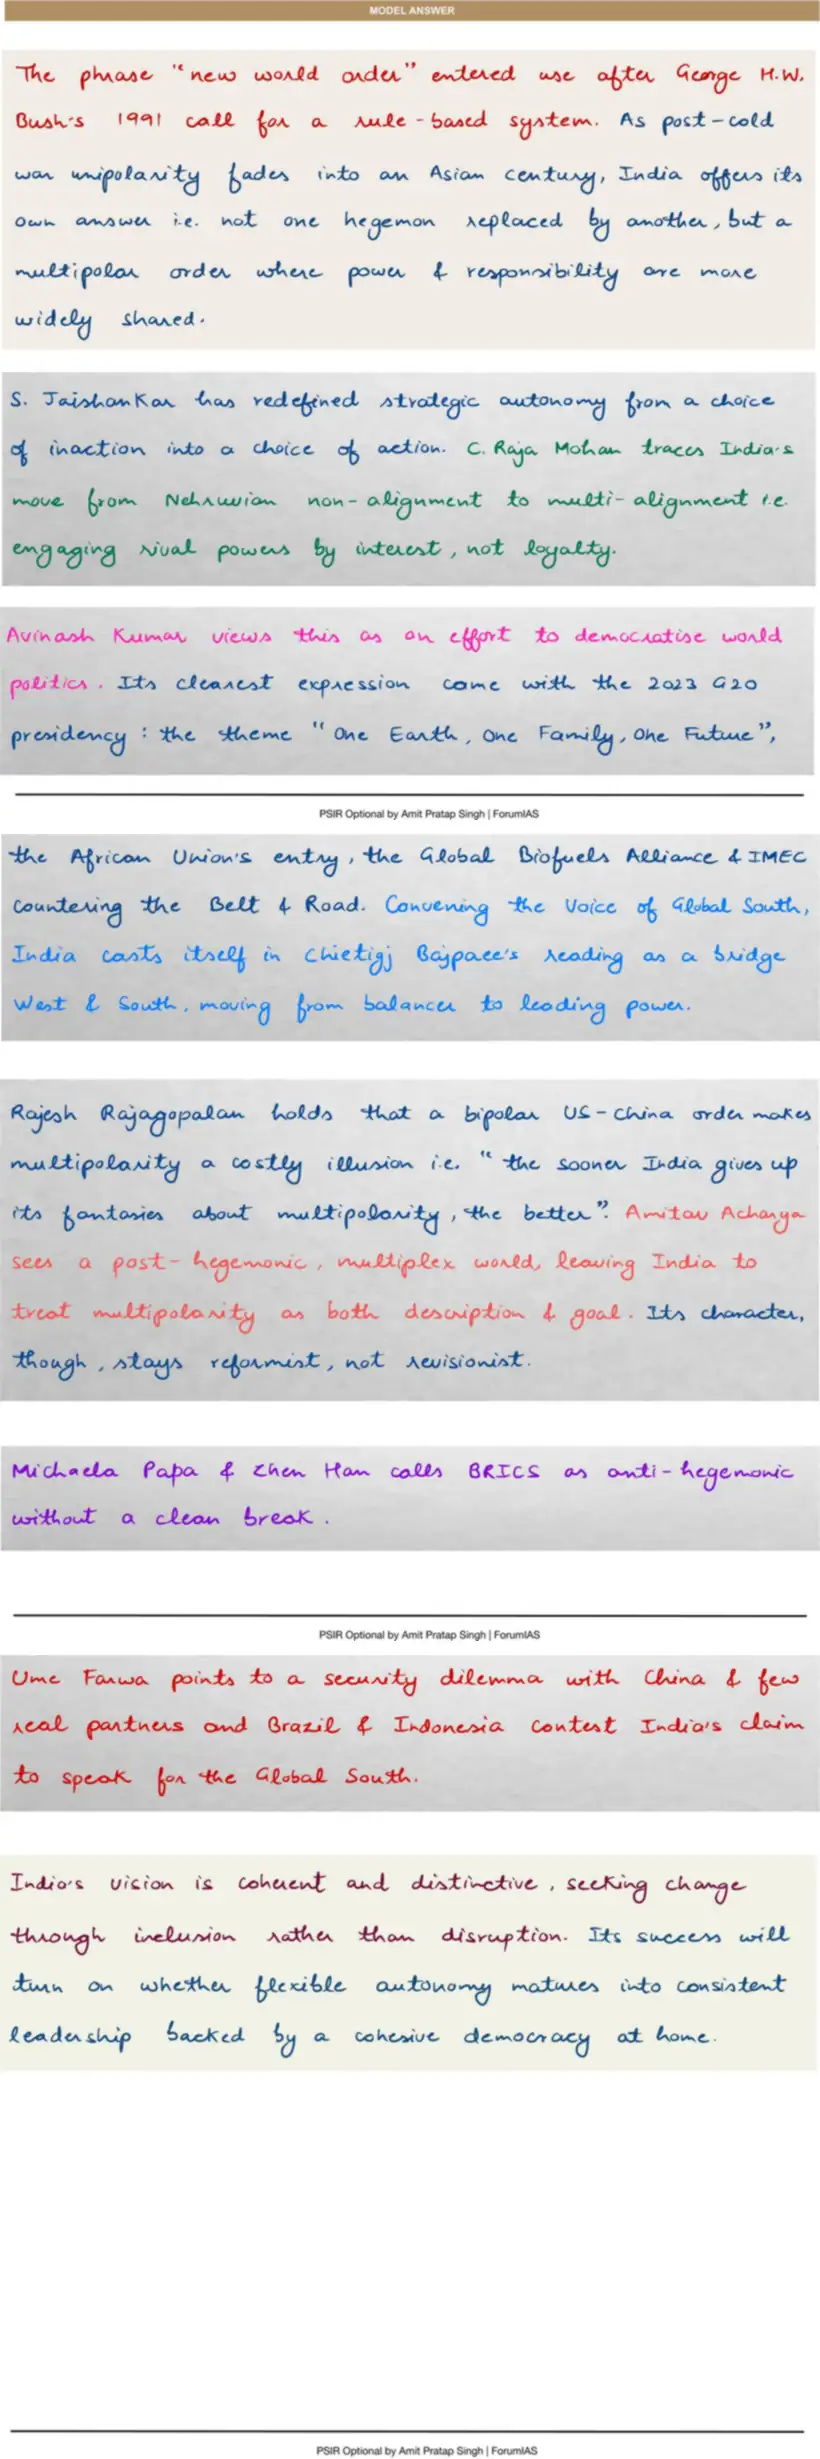 MODEL ANSWER
The phrase "new world order" entered use after George H.W.
Bush's 1991 call for a rule-based system. As post-cold
war unipolarity fades into an Asian century, India offers its
own answer i.e. not one hegemon replaced by another, but a
multipolar order where power & responsibility are more
widely shared.
S. Jaishankar has redefined strategic autonomy from a choice
of inaction into a choice of action. C. Raja Mohan traces India's
move from Nehruvian non-alignment to multi-alignment i.e.
engaging rival powers by interest, not loyalty.
Avinash Kumar views this as an effort to democratise world
politics. Its clearest expression came with the 2023 G20
presidency: the theme "One Earth, One Family, One Future",
PSIR Optional by Amit Pratap Singh | ForumIAS
the African Union's entry, the Global Biofuels Alliance & IMEC
countering the Belt & Road. Convening the Voice of Global South,
India casts itself in Chietigj Bajpaee's reading as a bridge
West & South, moving from balancer to leading power.
Rajesh Rajagopalan holds that a bipolar US-China order makes
multipolarity a costly illusion i.e. "the sooner India gives up
its fantasies about multipolarity, the better". Amitav Acharya
sees a post-hegemonic, multiplex world, leaving India to
treat multipolarity as both description & goal. Its character,
though, stays reformist, not revisionist.
Michaela Papa & Zhen Han calls BRICS as anti-hegemonic
without a clean break.
PSIR Optional by Amit Pratap Singh | ForumIAS
Ume Farwa points to a security dilemma with China & few
real partners and Brazil & Indonesia contest India's claim
to speak for the Global South.
India's vision is coherent and distinctive, seeking change
through inclusion rather than disruption. Its success will
turn on whether flexible autonomy matures into consistent
leadership backed by a cohesive democracy at home.
PSIR Optional by Amit Pratap Singh | ForumIAS